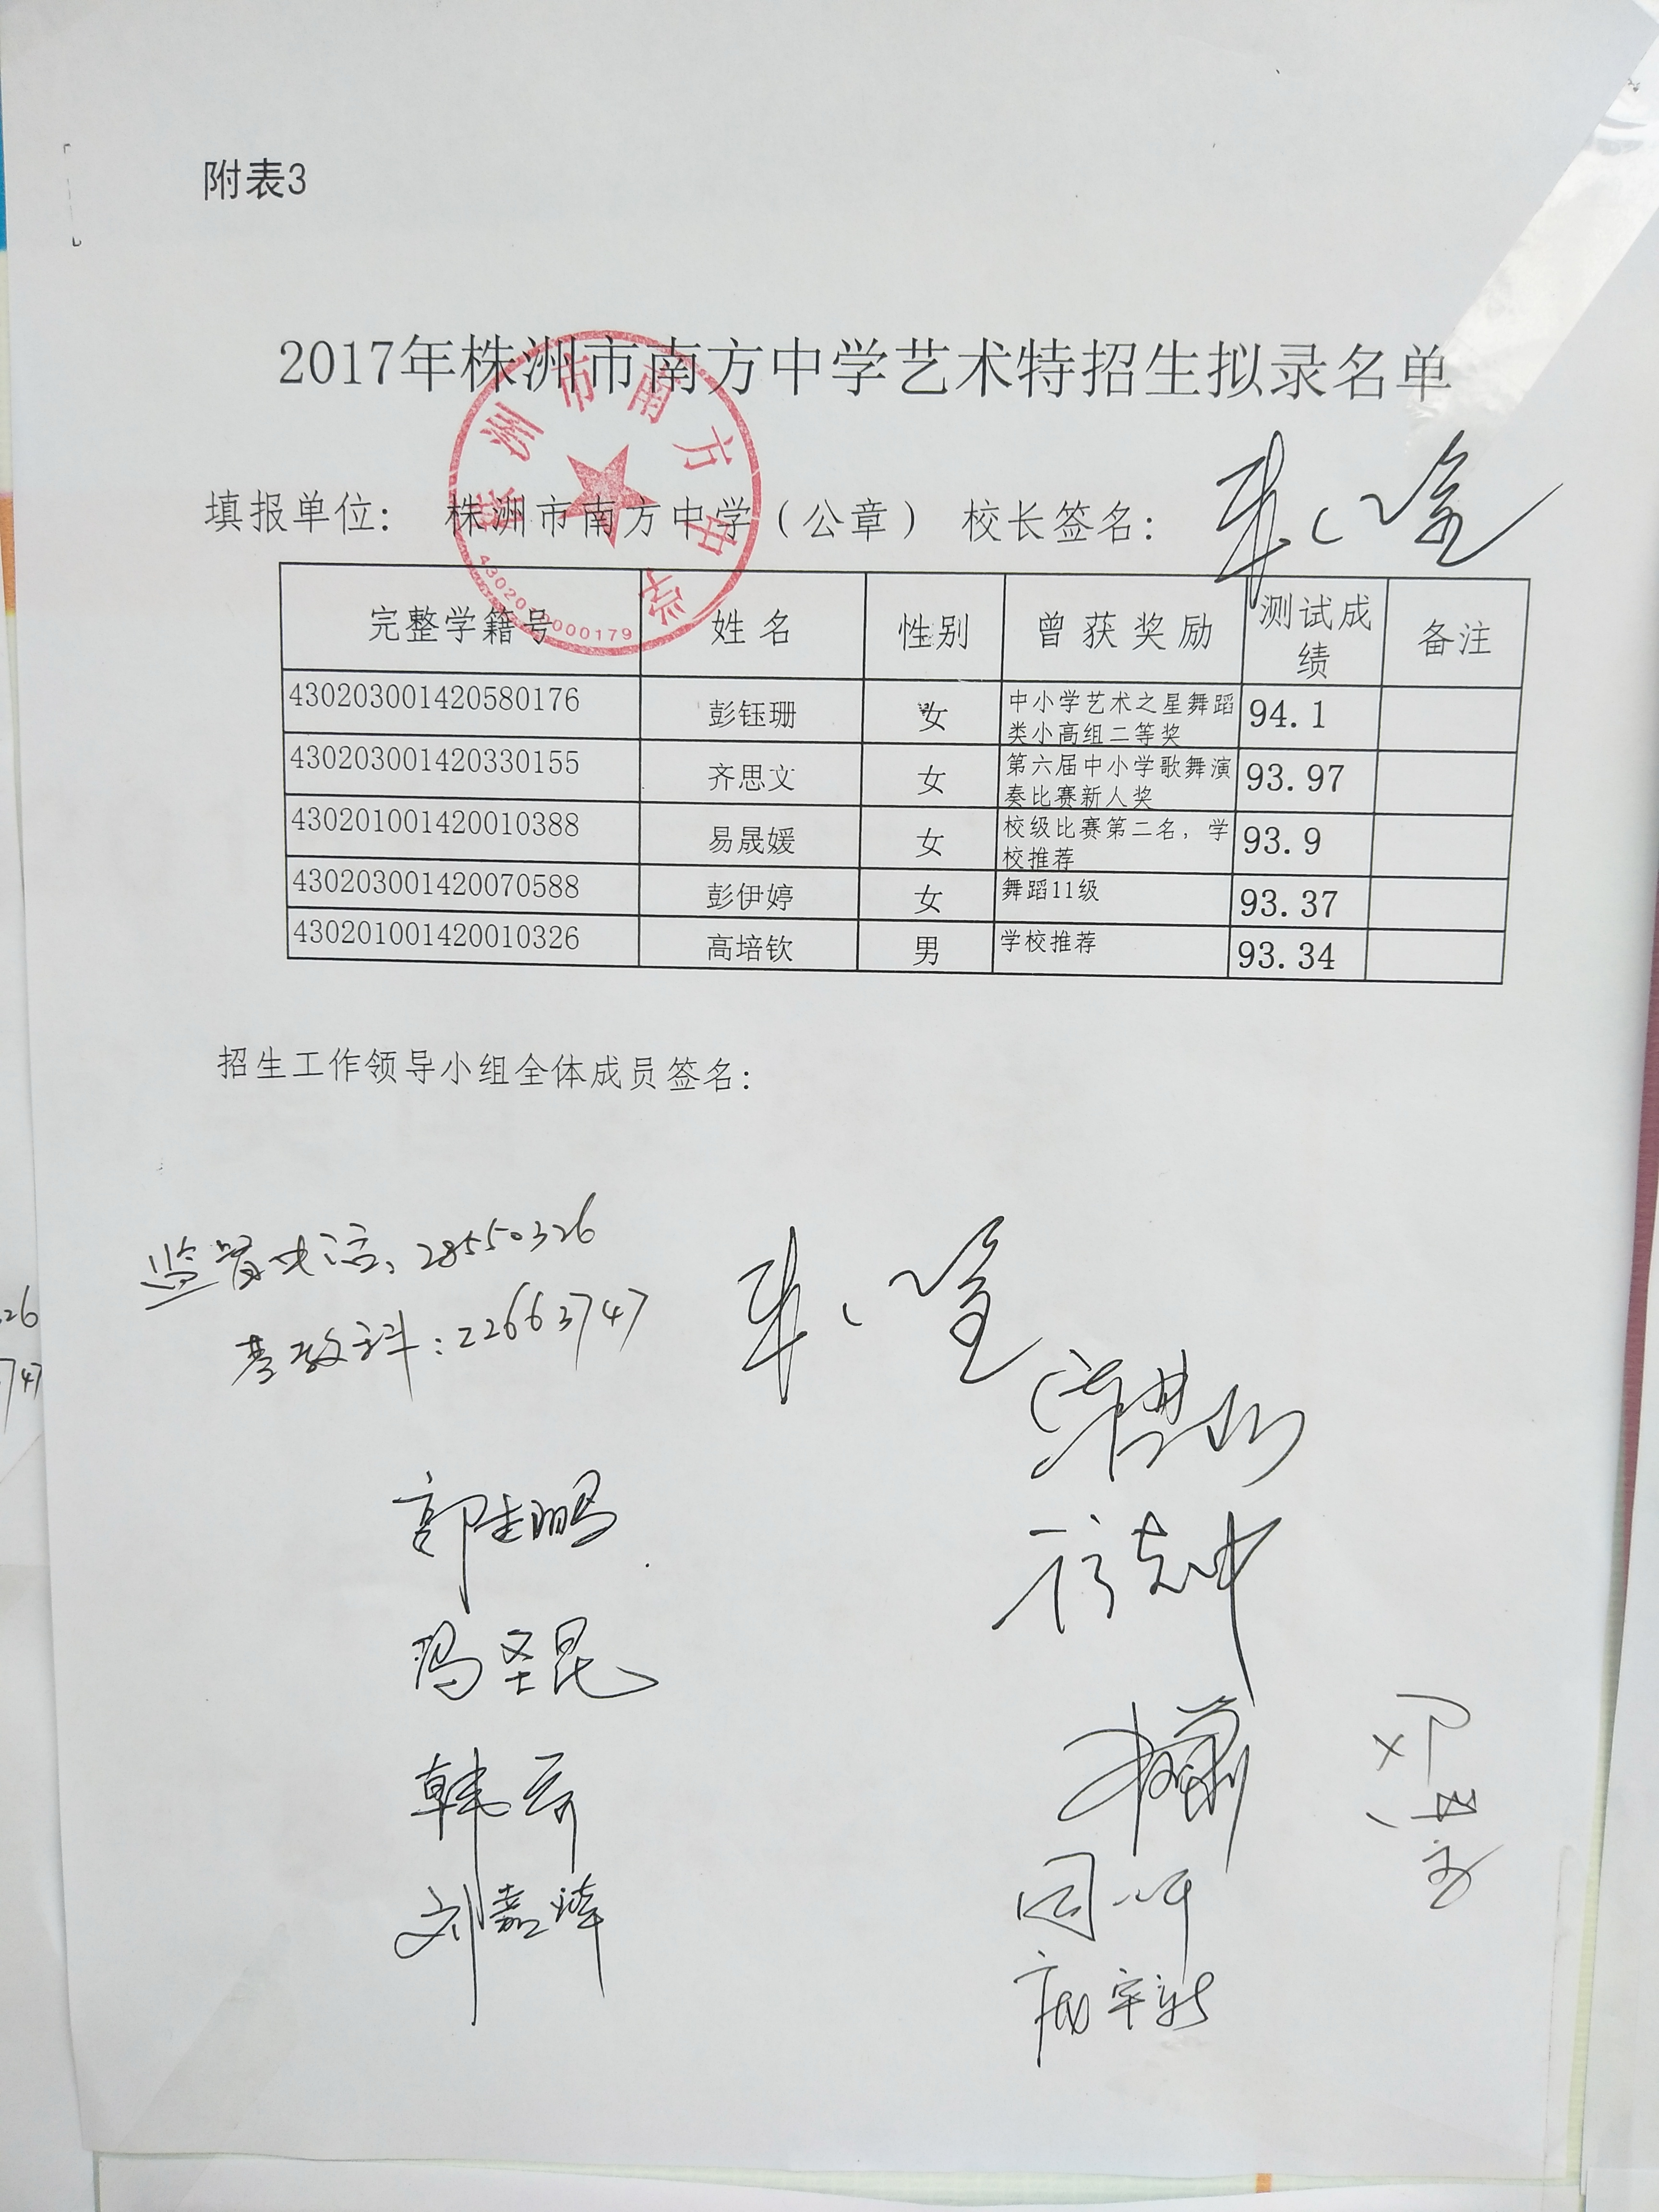 附表3
2017年株洲市南方中学艺术特招生拟录名单
株洲市南方中学
4302010000179
填报单位： 株洲市南方中学（公章） 校长签名：
完整学籍号 姓名 性别 曾获奖励 测试成绩 备注
430203001420580176 彭钰珊 女 中小学艺术之星舞蹈类小高组二等奖 94.1
430203001420330155 齐思文 女 第六届中小学歌舞演奏比赛新人奖 93.97
430201001420010388 易晟媛 女 校级比赛第二名，学校推荐 93.9
430203001420070588 彭伊婷 女 舞蹈11级 93.37
430201001420010326 高培钦 男 学校推荐 93.34
招生工作领导小组全体成员签名：
监督电话：28550326
基教科：22663747
郭生鹏
冯圣昆
韩云
刘嘉
26
747